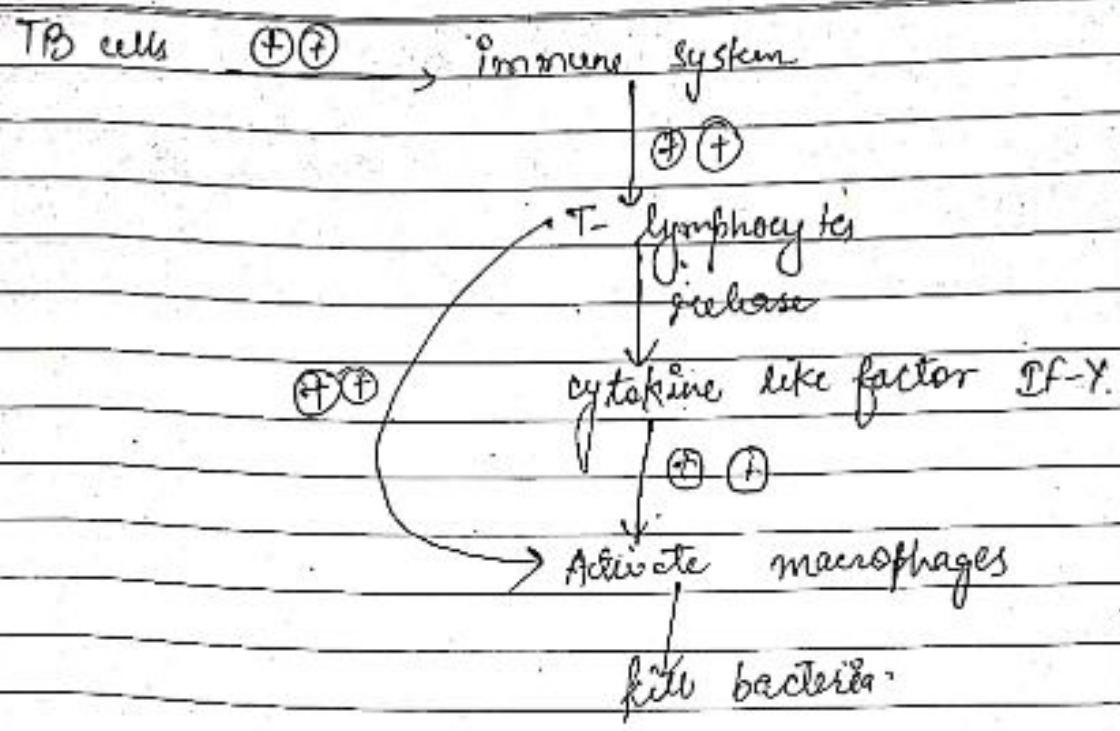 TB cells ⊕⊕ → immune system
⊕ ⊕
T- lymphocytes
release
⊕⊕ cytokine like factor If-γ.
⊕ ⊕
Activate macrophages
kill bacteria.